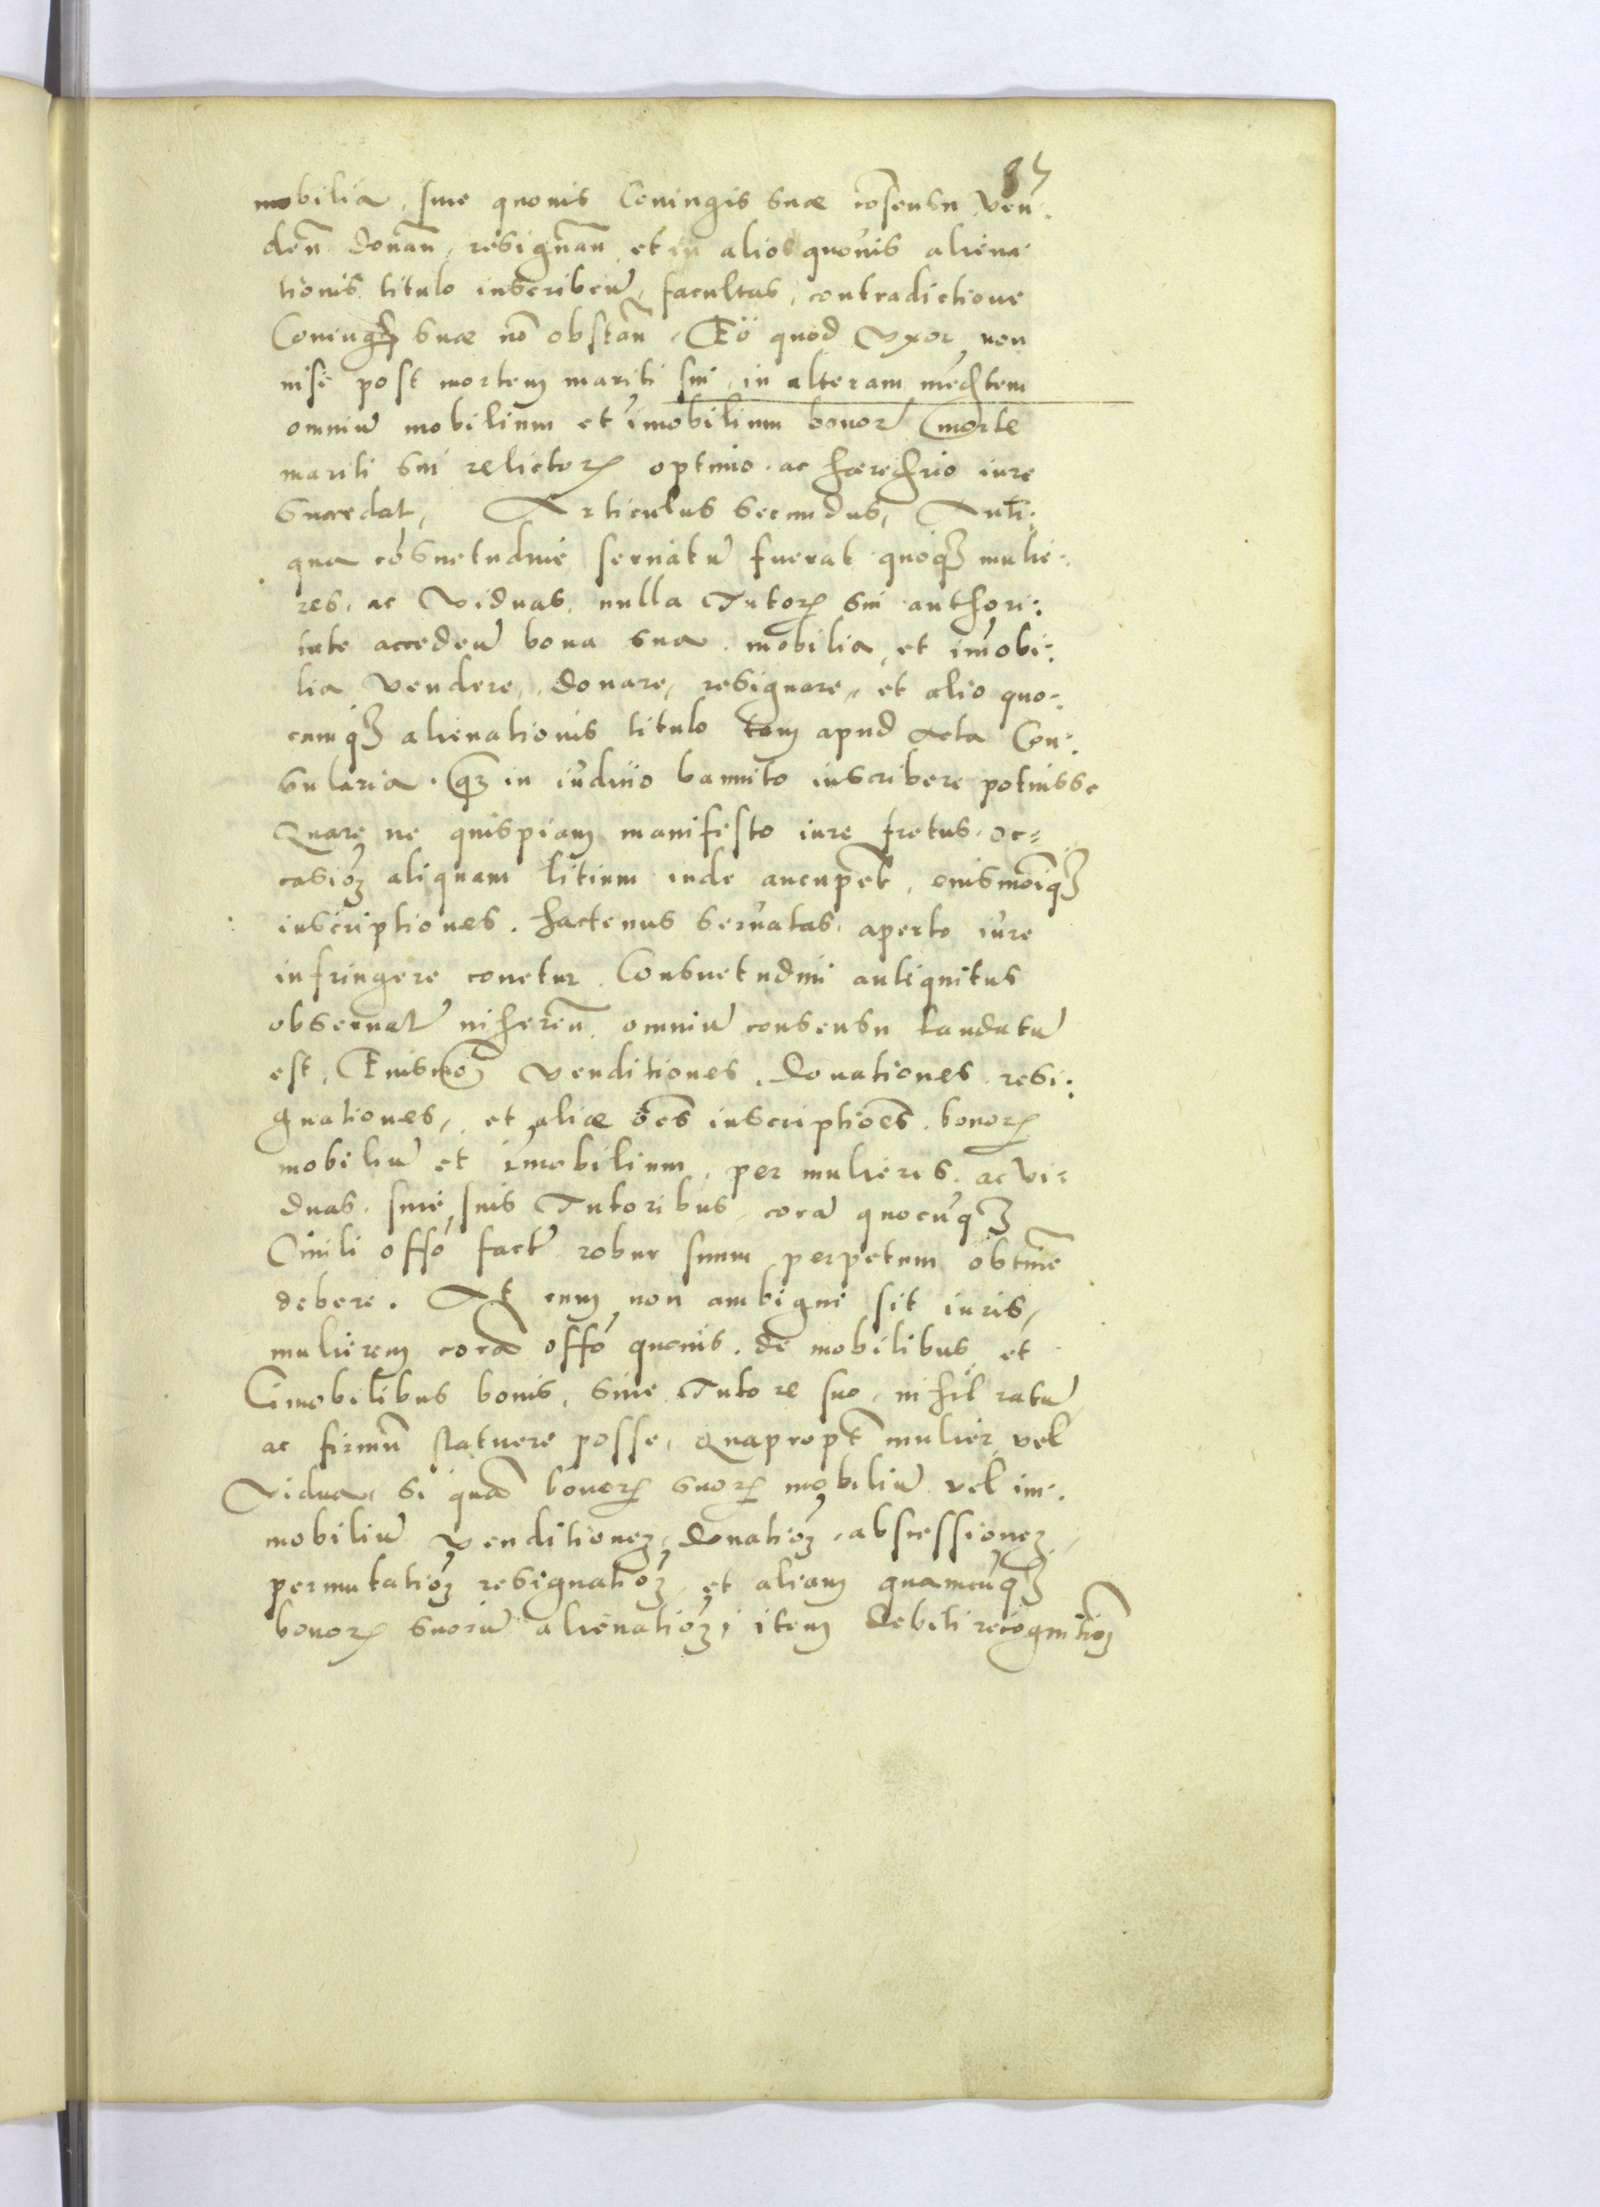 85
mobilia, sine quovis Coniugis suae cõsensu ven-
deñ donañ, resignañ et in alio quovis aliena
tionis titulo inscribeñ, facultas, contradictione
Coniugis suae nõ obstañ. Eo quod Uxor non
nisi post mortem mariti sui, in alteram medtem
omniũ mobilium et imobilium bonor morte
mariti sui relictor optimo ac haeredrio iure
succedat, Articulus secundus, Anti:
qua cõsuetudine servatũ fuerat quoq mulie:
res, ac viduas, nulla Tutor sui authori:
tate accedeñ bona sua mobilia, et imobi:
lia vendere, donare, resignare, et alio quo:
cumq alienationis titulo tam apud Acta Con:
sularia, q in iudiio bannito inscribere potuisse
Quare ne quispiam manifesto iure fretus oc=
casiõ aliquam litium inde aucupet, eiusmõiq
inscriptiones, hactenus servatas, aperto iure
infringere conetur. Consuetudini antiquitus
observat inhereñ omniũ consensu laudatũ
est, Eiusmõi venditiones, donationes, resi:
gnationes, et aliae oẽs inscriptiões bonor
mobiliũ et imobilium, per mulieres, ac vi:
duas, sine suis Tutoribus, corã quocũq
Civili offõ fact robur suum perpetuum obtine
debere. At cum non ambigui sit iuris,
mulierem corã offõ quovis, de mobilibus et
imobilibus bonis, sine Tutore suo, nihil ratũ
ac firmũ statuere posse, Quapropt mulier vel
Vidua, si quã bonor suor mobiliũ vel im:
mobiliũ venditionem, donatiõ, abscessionem,
permutatiõ resignatiõ, et aliam quamcũq
bonor suorũ alienatiõ, item debiti recognitiõ